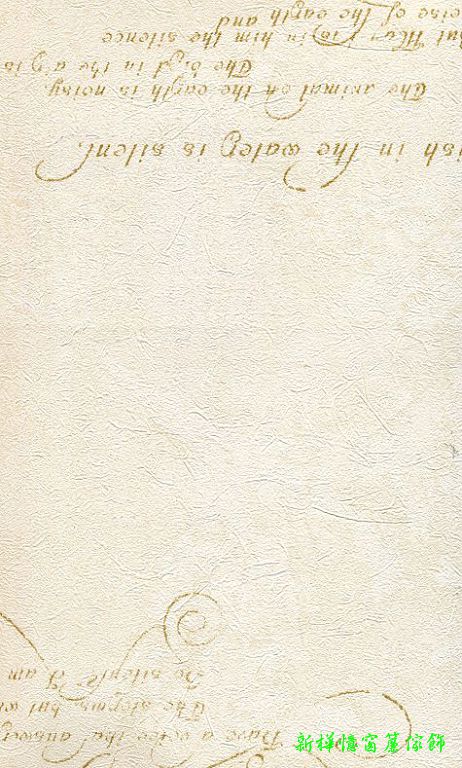 Have a voice the answer
The storms, but
Be silent? I am
ish in the water is silent,
The animal on the earth is noisy,
The bird in the air is
But Man has in him the silence
oise of the earth and
新樣憶窗簾傢飾